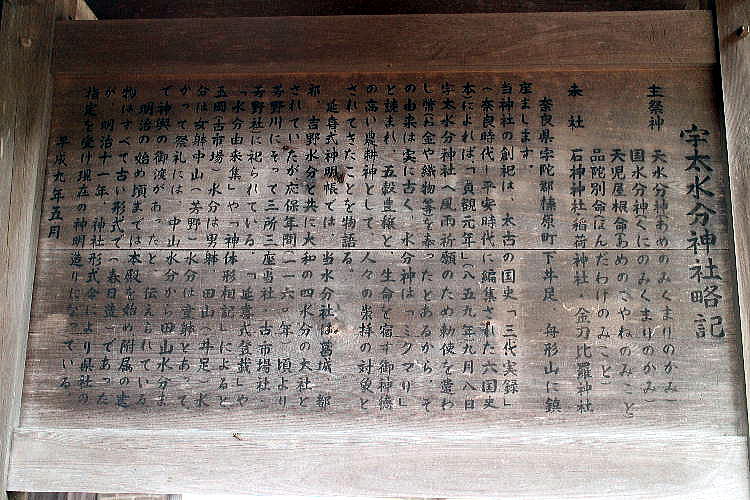 宇太水分神社略記
主祭神　天水分神(あめのみくまりのかみ)
国水分神(くにのみくまりのかみ)
天児屋根命(あめのこやねのみこと)
品陀別命(ほんだわけのみこと)
末社　石神神社・稲荷神社・金刀比羅神社
奈良県宇陀郡榛原町下井足　舟形山に鎮
座まします。
当神社の創祀は、太古の国史「三代実録」
(奈良時代〜平安時代に編集された六国史
本)によれば「貞観元年」(八五九年九月八日
宇太水分神社へ風雨祈願のため勅使を遣わ
し幣(お金や織物等)を奉ったとあるから、そ
の由来は実に古く、水分神は「ミクマリ」
と読まれ、五穀豊穣と、生命を宿す御神徳
の高い農耕神として、人々の崇拝の対象と
されてきたことを物語る。
延喜式神明帳では、当水分社は葛城、都
祁、吉野水分と共に大和の四水分の大社と
されていたが応保年間(一一六〇年)頃より
芳野川にそって三所三座(当社・古市場社・
芳野社)に祀られている。「延喜式登哉」や
「水分由来集」や「神体形相記」によると
五岡(古市場)水分は男躰、田山(井足)水
分は女躰中山(芳野)水分は童躰とあって、
かつて祭礼には、中山水分から田山水分ま
で神輿の御渡があったと、伝えられている
明治の始め頃までは本殿を始め附属の建
物はすべて古い形式で(春日造)であった
が、明治十一年、神社形式令により県社の
指定を受け現在の神明造りになっている
平成九年五月